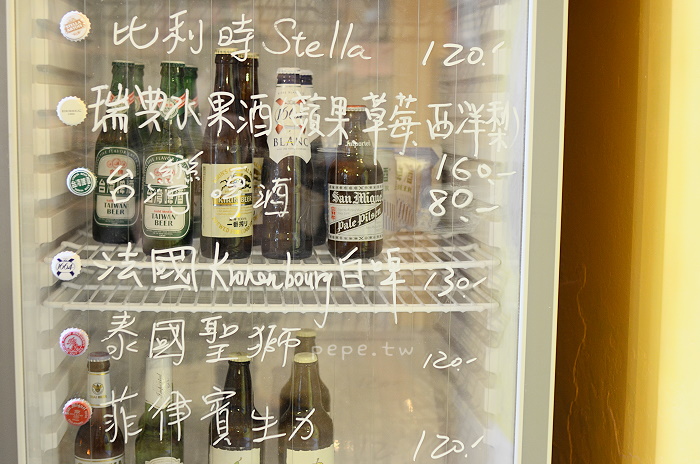 比利時Stella 120.-
瑞典水果酒(蘋果 草莓 西洋梨)
160.-
台灣啤酒 80.-
法國Kronenbourg白啤 130.-
泰國聖獅 120.-
菲律賓生力 120.-
pepe.tw
1664
BLANC
台灣啤酒
TAIWAN
BEER
台灣啤酒
TAIWAN
BEER
KIRIN
一番搾り
San Miguel
Pale Pilsen
1664